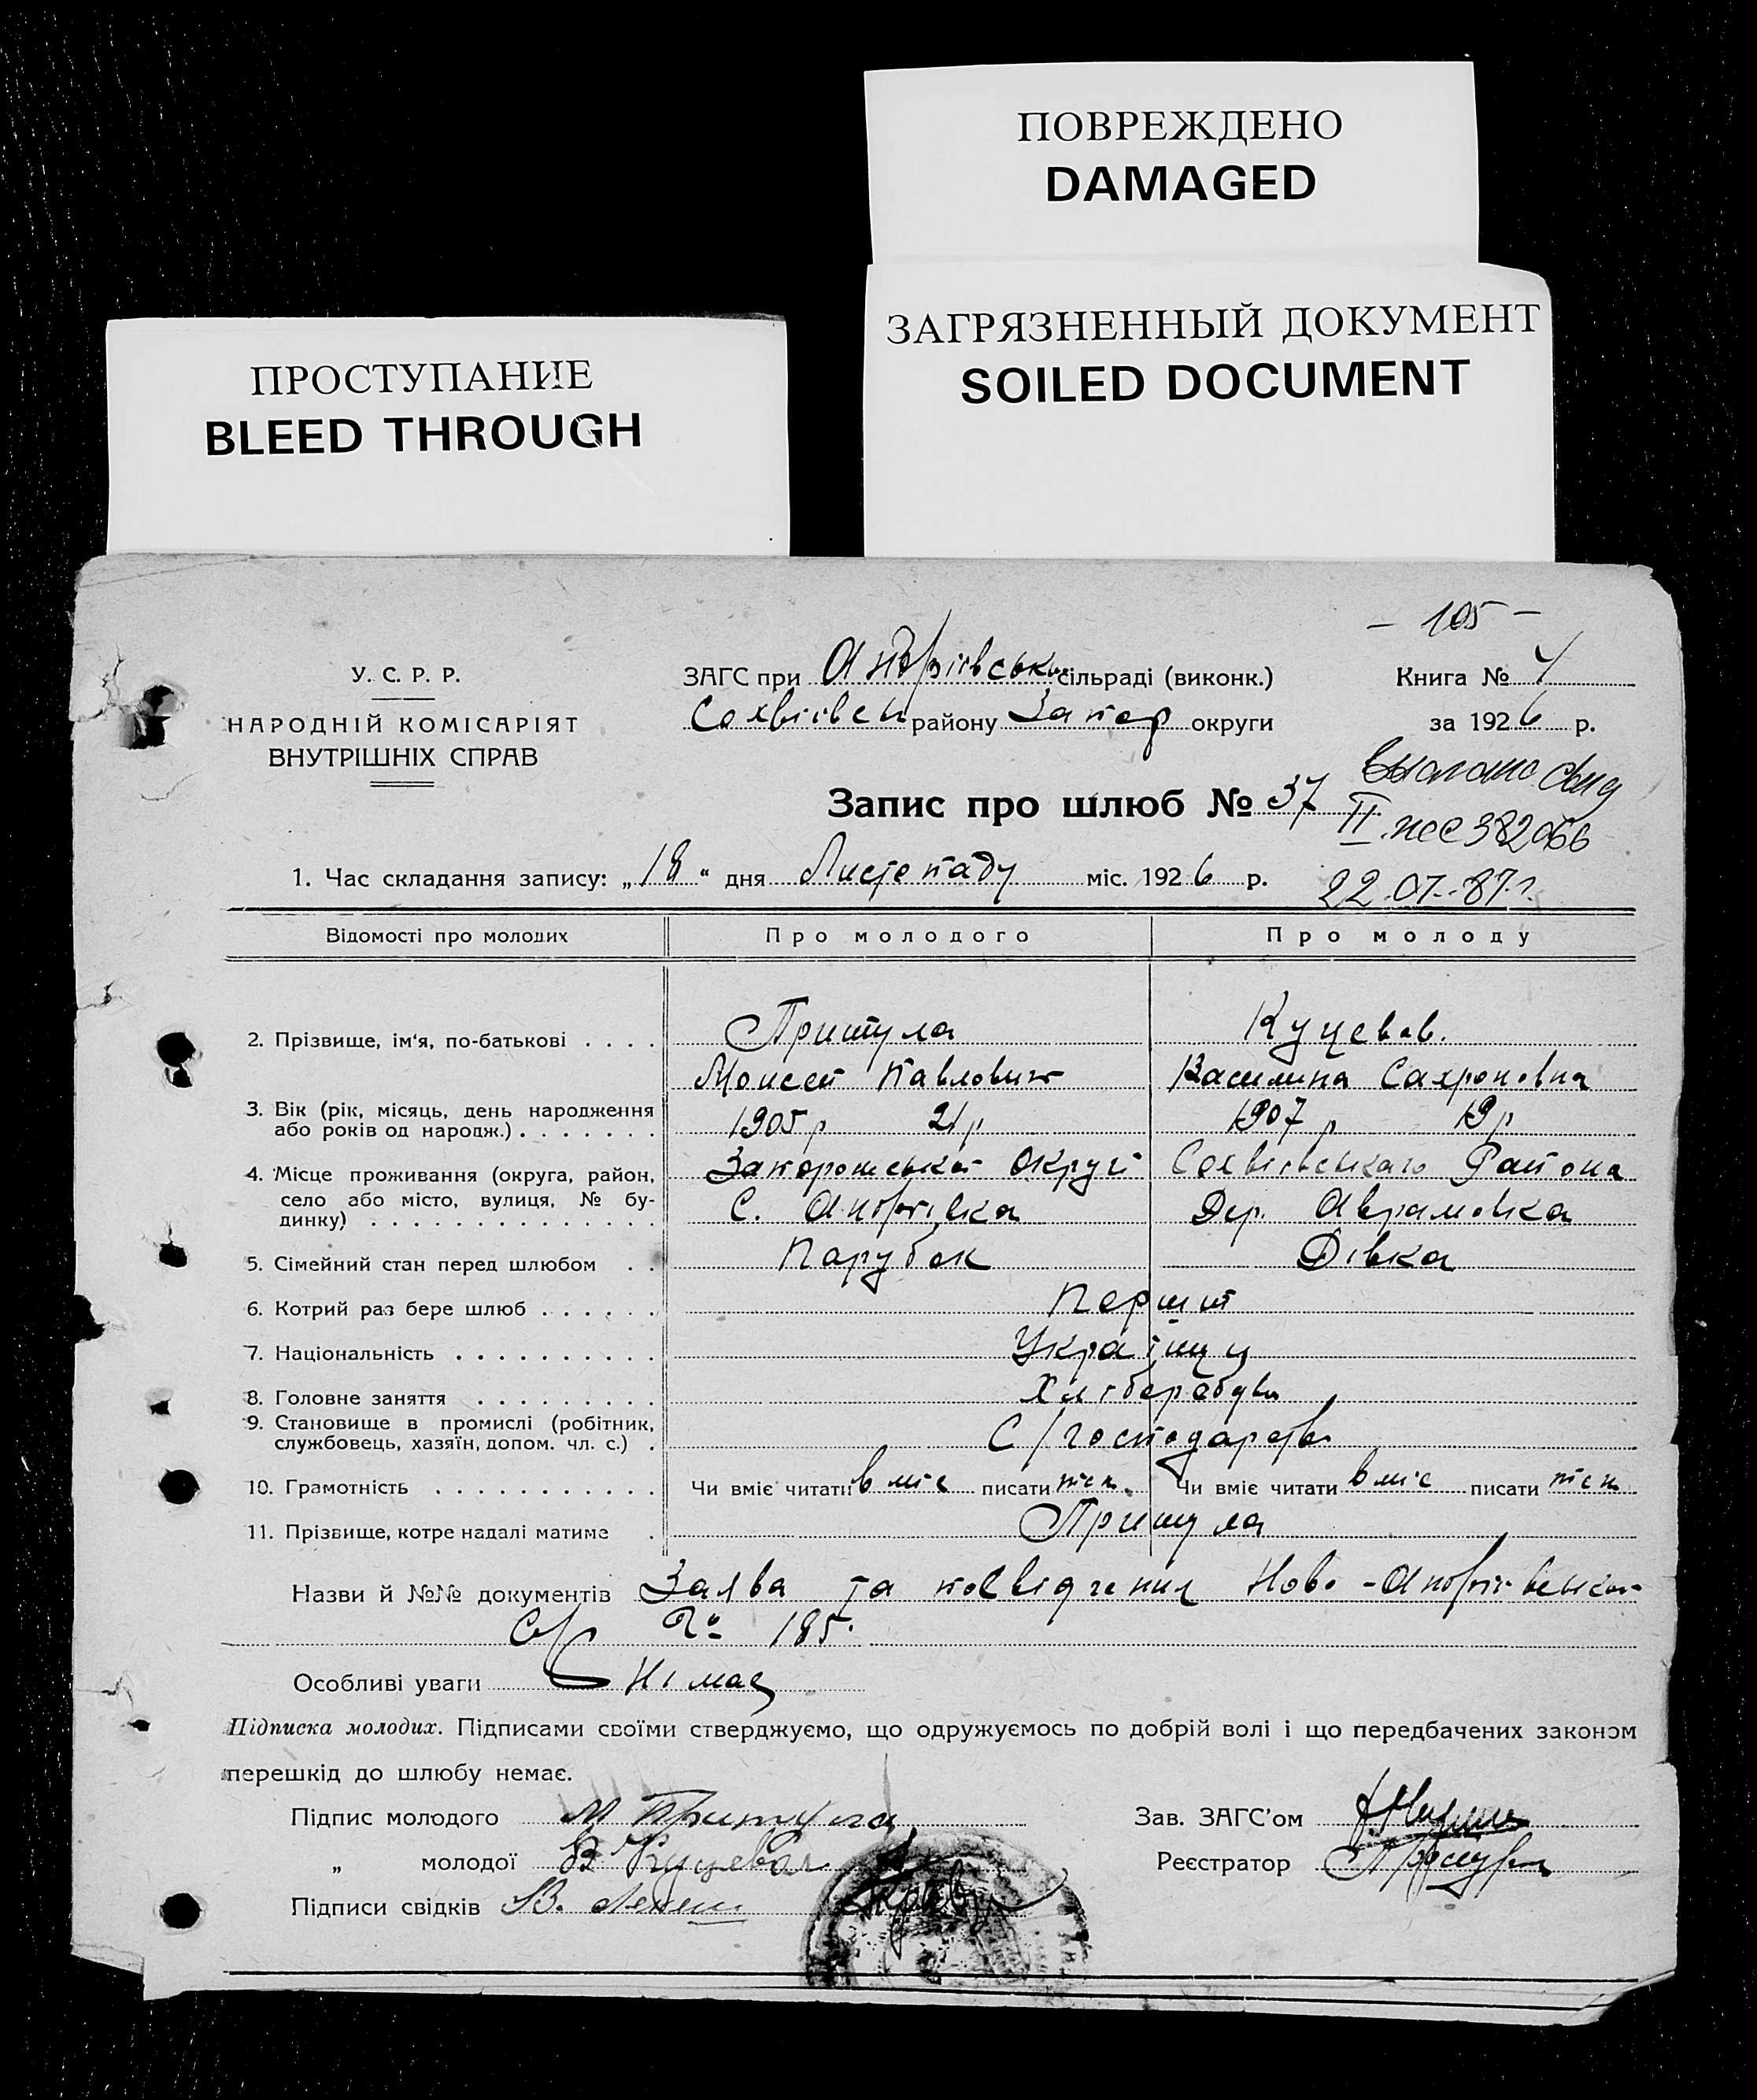 ПОВРЕЖДЕНО
DAMAGED
ЗАГРЯЗНЕННЫЙ ДОКУМЕНТ
SOILED DOCUMENT
ПРОСТУПАНИЕ
BLEED THROUGH
- 105 -
У. С. Р. Р.
НАРОДНІЙ КОМІСАРІЯТ
ВНУТРІШНІХ СПРАВ
ЗАГС при сільраді (виконк.)
району Запор округи
Книга №
за 1926 р.
Запис про шлюб № 37
II 382066
22.07.87г.
1. Час складання запису: „18“ дня Листопаду міс. 1926 р.
Відомості про молодих Про молодого Про молоду
2. Прізвище, ім'я, по-батькові Притула Куцевав.
Моисей Павлович Василина Сахроновна
3. Вік (рік, місяць, день народження
або років од народж.) 1905 р 21 р 1907 р 19 р
4. Місце проживання (округа, район,
село або місто, вулиця, № бу-
динку)
Запорожської Округи Района
С. Дер. Аврамовка
5. Сімейний стан перед шлюбом Парубок Дівка
6. Котрий раз бере шлюб Перший
7. Національність Українці
8. Головне заняття Хлібороби
9. Становище в промислі (робітник,
службовець, хазяїн, допом. чл. с.) С/господарство
10. Грамотність Чи вміє читати вміє писати теж Чи вміє читати вміє писати теж
11. Прізвище, котре надалі матиме Притула
Назви й №№ документів Заява та посвідчення Ново-
С/С № 185.
Особливі уваги Німає
Підписка молодих. Підписами своїми стверджуємо, що одружуємось по добрій волі і що передбачених законом
перешкід до шлюбу немає.
Підпис молодого М Притула
„ молодої В Куцевая
Підписи свідків
Зав. ЗАГС'ом
Реєстратор